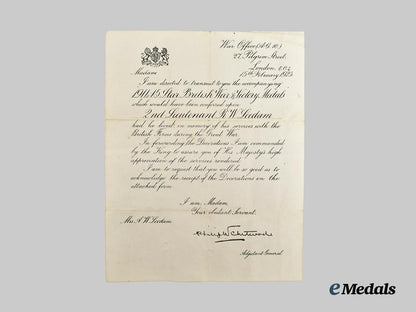 War Office (A.G.10)
27, Pilgrim Street,
London, E.C.4.
15th February 1923
Madam
I am directed to transmit to you the accompanying
1914/15 Star, British War & Victory Medals
which would have been conferred upon
2nd Lieutenant R W Leedam
had he lived, in memory of his services with the
British Forces during the Great War.
In forwarding the Decorations I am commanded
by the King to assure you of His Majesty's high
appreciation of the services rendered.
I am to request that you will be so good as to
acknowledge the receipt of the Decorations on the
attached form.
I am, Madam
Your obedient Servant.
Mrs A W Leedam
Adjutant General.
eMedals